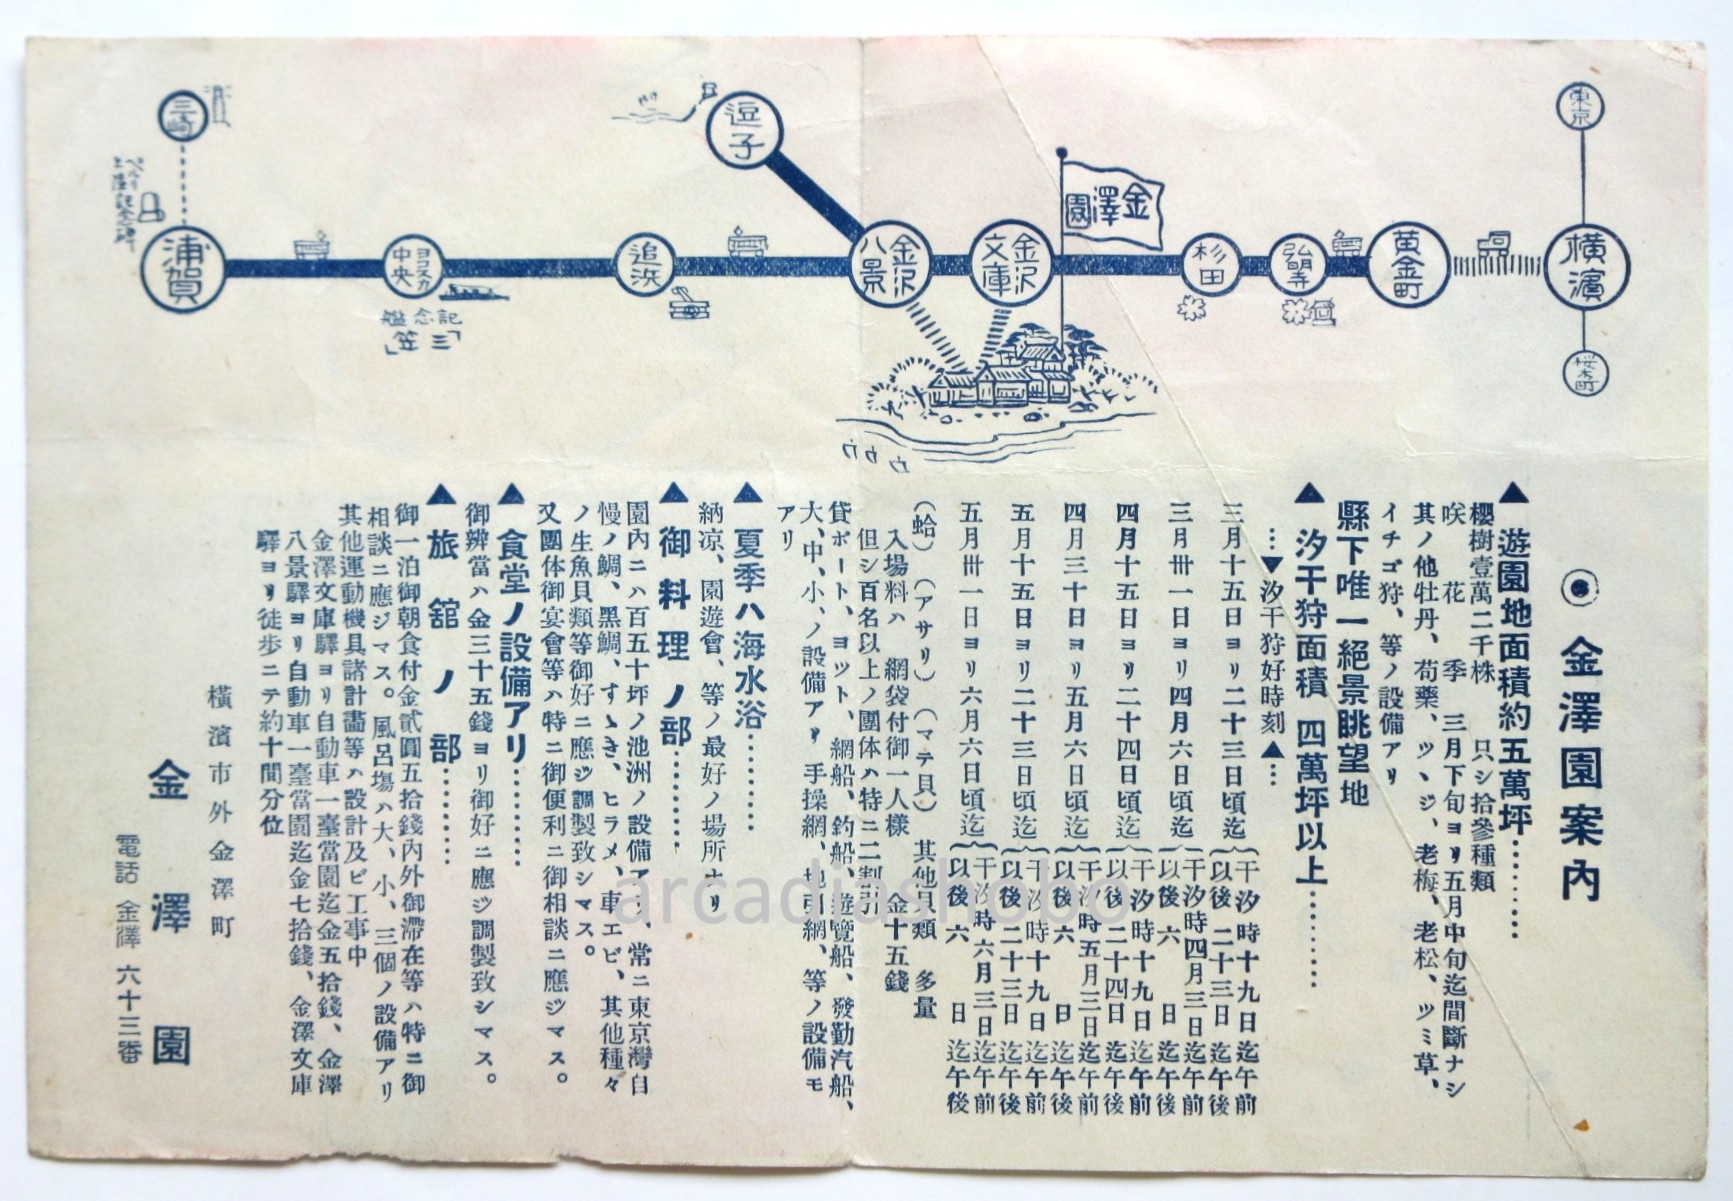 東京
橫濱
桜木町
黄金町
弘明寺
杉田
金澤園
金沢文庫
金沢八景
逗子
追浜
ヨコスカ中央
記念艦
「三笠」
浦賀
三崎
ペルリ
上陸記念碑
◉金澤園案內
▲遊園地面積約五萬坪………
櫻樹壹萬二千株 只シ拾參種類
咲花季 三月下旬ヨリ五月中旬迄間斷ナシ
其ノ他牡丹、芍藥、ツヽジ、老梅、老松、ツミ草、
イチゴ狩、等ノ設備アリ
縣下唯一絕景眺望地
▲汐干狩面積 四萬坪以上………
…▼汐干狩好時刻▲…
三月十五日ヨリ二十三日頃迄{干汐時十九日迄午前
以後二十三日迄午後
三月卅一日ヨリ四月六日頃迄{干汐時四月三日迄午前
以後六日迄午後
四月十五日ヨリ二十四日頃迄{干汐時十九日迄午前
以後二十四日迄午後
四月三十日ヨリ五月六日頃迄{干汐時五月三日迄午前
以後六日迄午後
五月十五日ヨリ二十三日頃迄{干汐時十九日迄午前
以後二十三日迄午後
五月卅一日ヨリ六月六日頃迄{干汐時六月三日迄午前
以後六日迄午後
(蛤)(アサリ)(マテ貝)其他貝類 多量
入場料ハ 網袋付御一人樣 金十五錢
但シ百名以上ノ團体ハ特ニ二割引
貸ボート、ヨット、網船、釣船、遊覽船、發動汽船、
大、中、小、ノ設備アリ手操網、地引網、等ノ設備モ
アリ
▲夏季ハ海水浴………
納凉、園遊會、等ノ最好ノ場所ナリ
▲御料理ノ部………
園內ニハ百五十坪ノ池洲ノ設備アリ、常ニ東京灣自
慢ノ鯛、黑鯛、すゞき、ヒラメ、車エビ、其他種々
ノ生魚貝類等御好ニ應ジ調製致シマス。
又團体御宴會等ハ特ニ御便利ニ御相談ニ應ジマス。
▲食堂ノ設備アリ………
御辨當ハ金三十五錢ヨリ御好ニ應ジ調製致シマス。
▲旅舘ノ部………
御一泊御朝食付金貳圓五拾錢內外御滯在等ハ特ニ御
相談ニ應ジマス。風呂塲ハ大、小、三個ノ設備アリ
其他運動機具諸計畫等ハ設計及ビ工事中
金澤文庫驛ヨリ自動車一臺當園迄金五拾錢、金澤
八景驛ヨリ自動車一臺當園迄金七拾錢、金澤文庫
驛ヨリ徒歩ニテ約十間分位
橫濱市外金澤町
金澤園
電話 金澤 六十三番
arcadiashobo